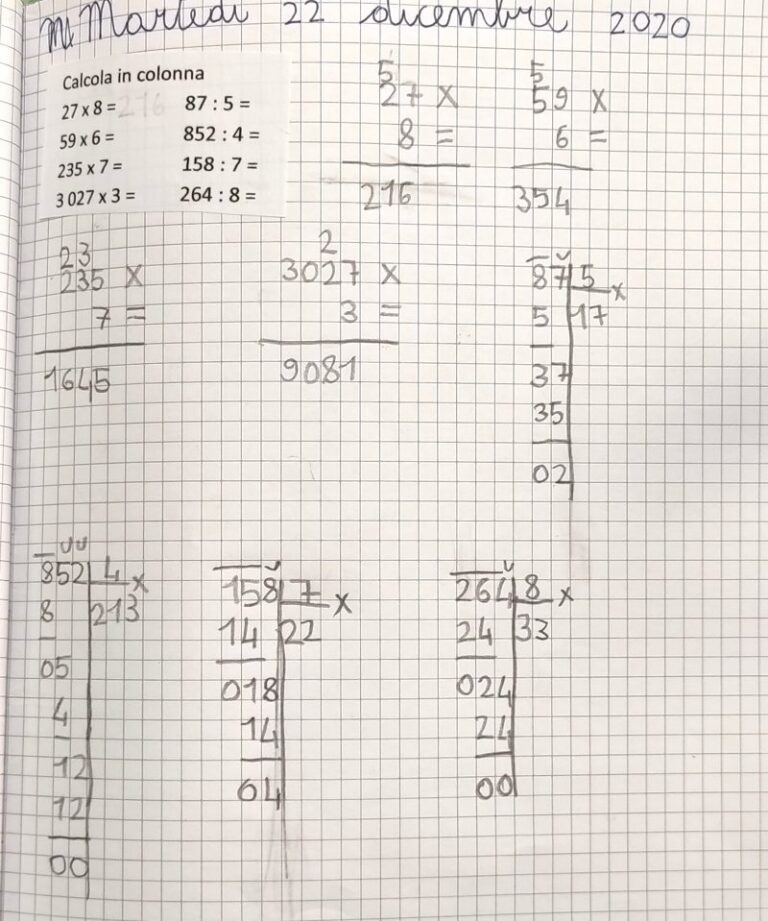 Martedì 22 dicembre 2020
Calcola in colonna
27 x 8 = 216 87 : 5 =
59 x 6 = 852 : 4 =
235 x 7 = 158 : 7 =
3 027 x 3 = 264 : 8 =
5
27 x
8 =
216
5
59 x
6 =
354
23
235 x
7 =
1645
2
3027 x
3 =
9081
87 5 x
5 17
37
35
02
852 4 x
8 213
05
4
12
12
00
158 7 x
14 22
018
14
04
264 8 x
24 33
024
24
00